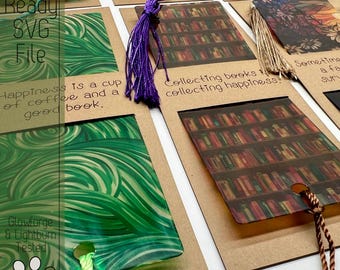 Ready
SVG
File
Happiness is a cup
of coffee and a
good book.
Collecting books is
collecting happiness!
Sometimes
a fa
sun
Glowforge
& Lightburn
Tested